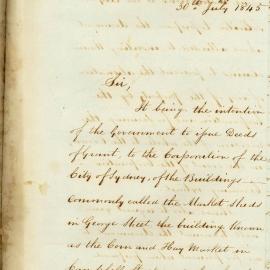 30th July 1845
Sir,
It being the intention
of the Government to issue Deeds
of Grant, to the Corporation of the
City of Sydney, of the Buildings
Commonly called the Market Sheds
in George Street the building Known
as the Corn and Hay Market in